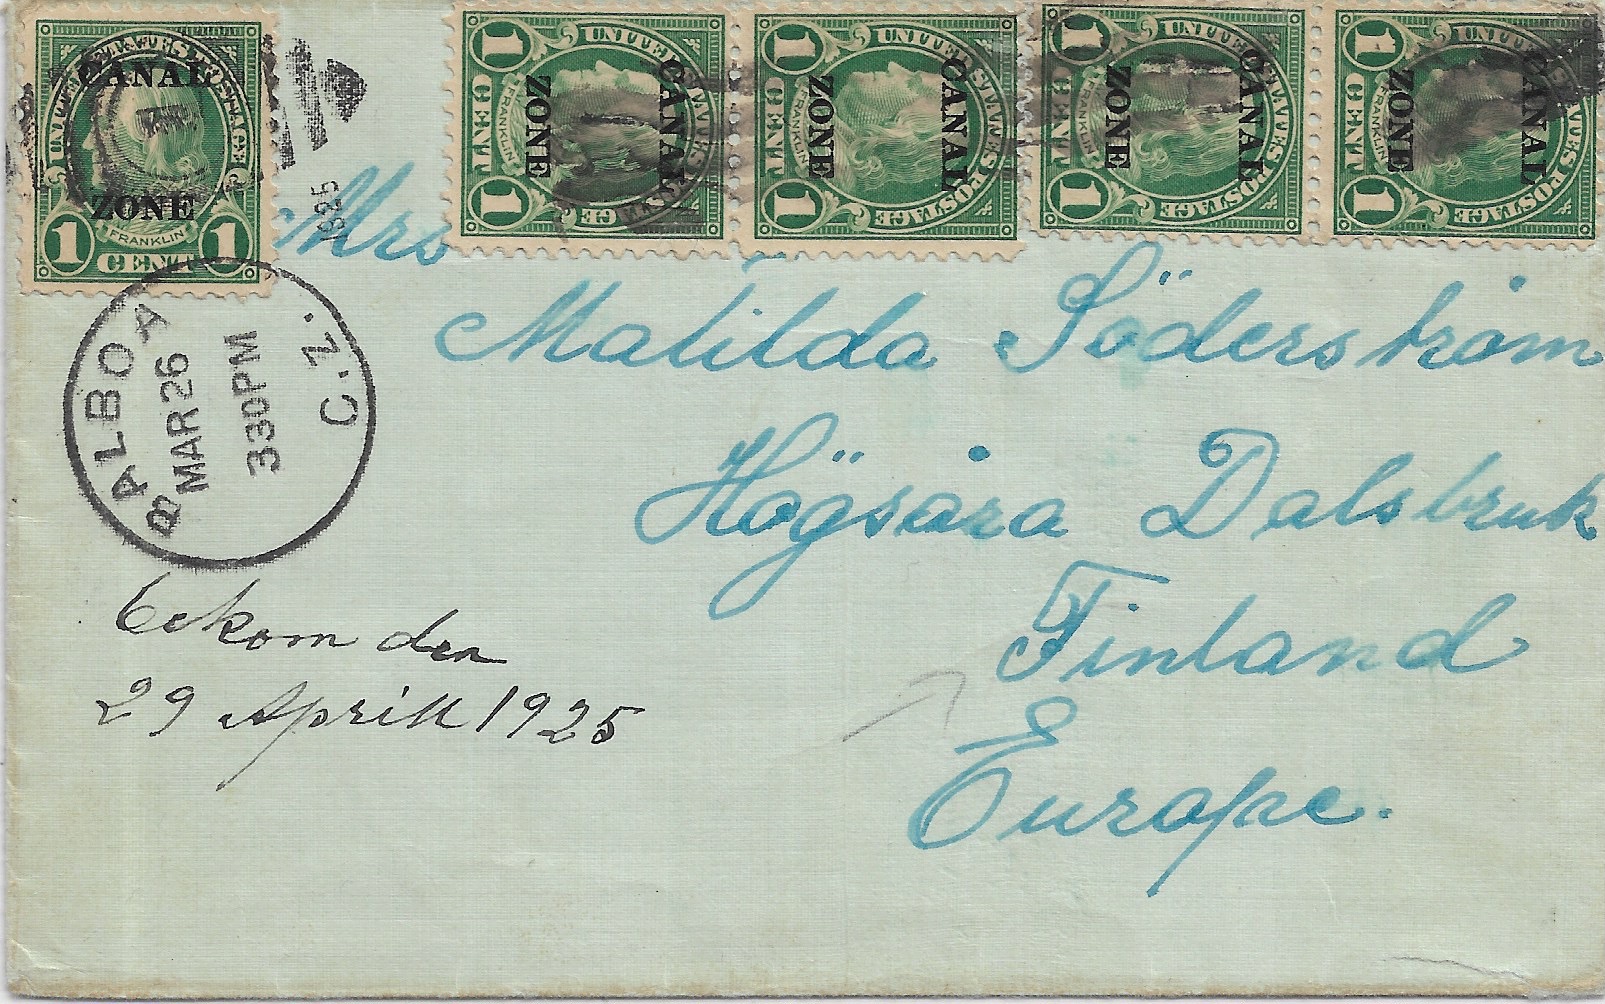 CANAL
ZONE
UNITED STATES POSTAGE
FRANKLIN
1 CENT 1
UNITED STATES POSTAGE
CANAL
ZONE
FRANKLIN
1 CENT 1
UNITED STATES POSTAGE
CANAL
ZONE
FRANKLIN
1 CENT 1
UNITED STATES POSTAGE
CANAL
ZONE
FRANKLIN
1 CENT 1
UNITED STATES POSTAGE
CANAL
ZONE
FRANKLIN
1 CENT 1
1925
BALBOA C.Z.
MAR 26
330PM
Mrs
Matilda Söderström
Högsåra Dalsbruk
Finland
Europe.
Bekom den
29 Aprill 1925